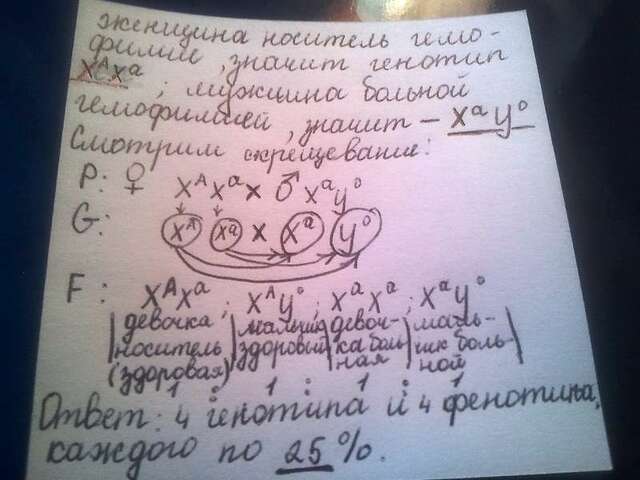 женщина носитель гемо-
филии, значит генотип
X^A X^a ; мужчина больной
гемофилией, значит – X^a Y^0
Смотрим скрещевание:
P: ♀ X^A X^a × ♂ X^a Y^0
G: X^A X^a × X^a Y^0
F: X^A X^a ; X^A Y^0 ; X^a X^a ; X^a Y^0
|девочка |мальчик |девоч- |маль-
|носитель |здоровый |ка боль |чик боль-
(здоровая) ная ной
1 : 1 : 1 : 1
Ответ: 4 генотипа и 4 фенотипа,
каждого по 25 %.